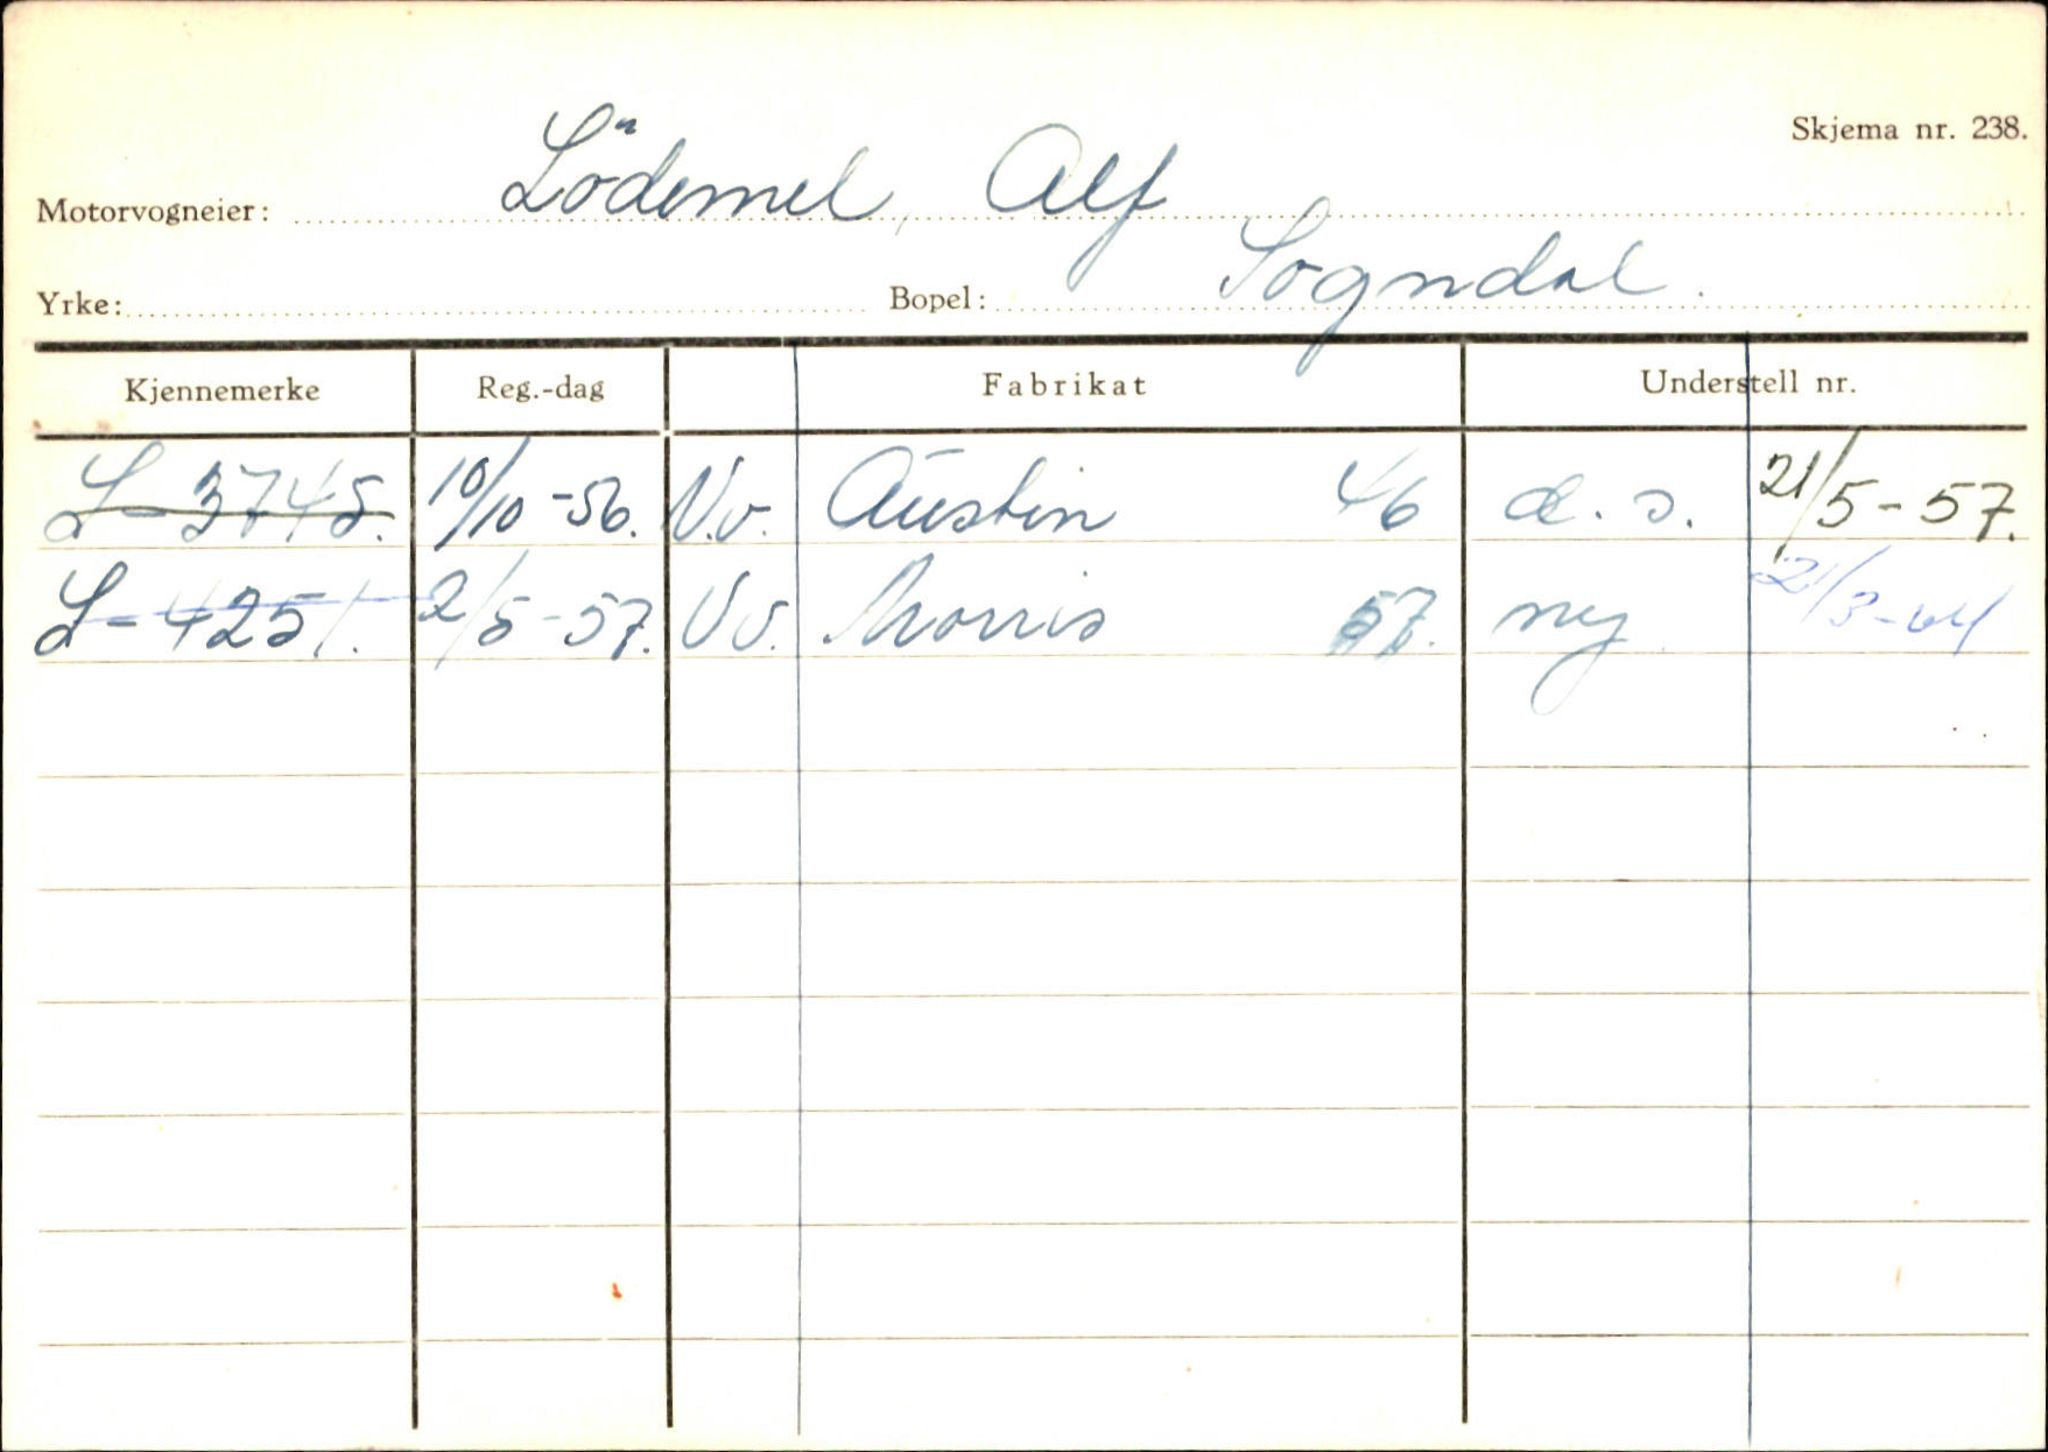 Skjema nr. 238.
Motorvogneier: Lödemel, Alf
Yrke: Bopel: Sogndal.
Kjennemerke Reg.-dag Fabrikat Understell nr.
L-3745. 10/10-56. V.v. Austin 46 d.s. 21/5-57.
L-4251. 2/5-57. Vv. Morris 57. ny 21/3-64